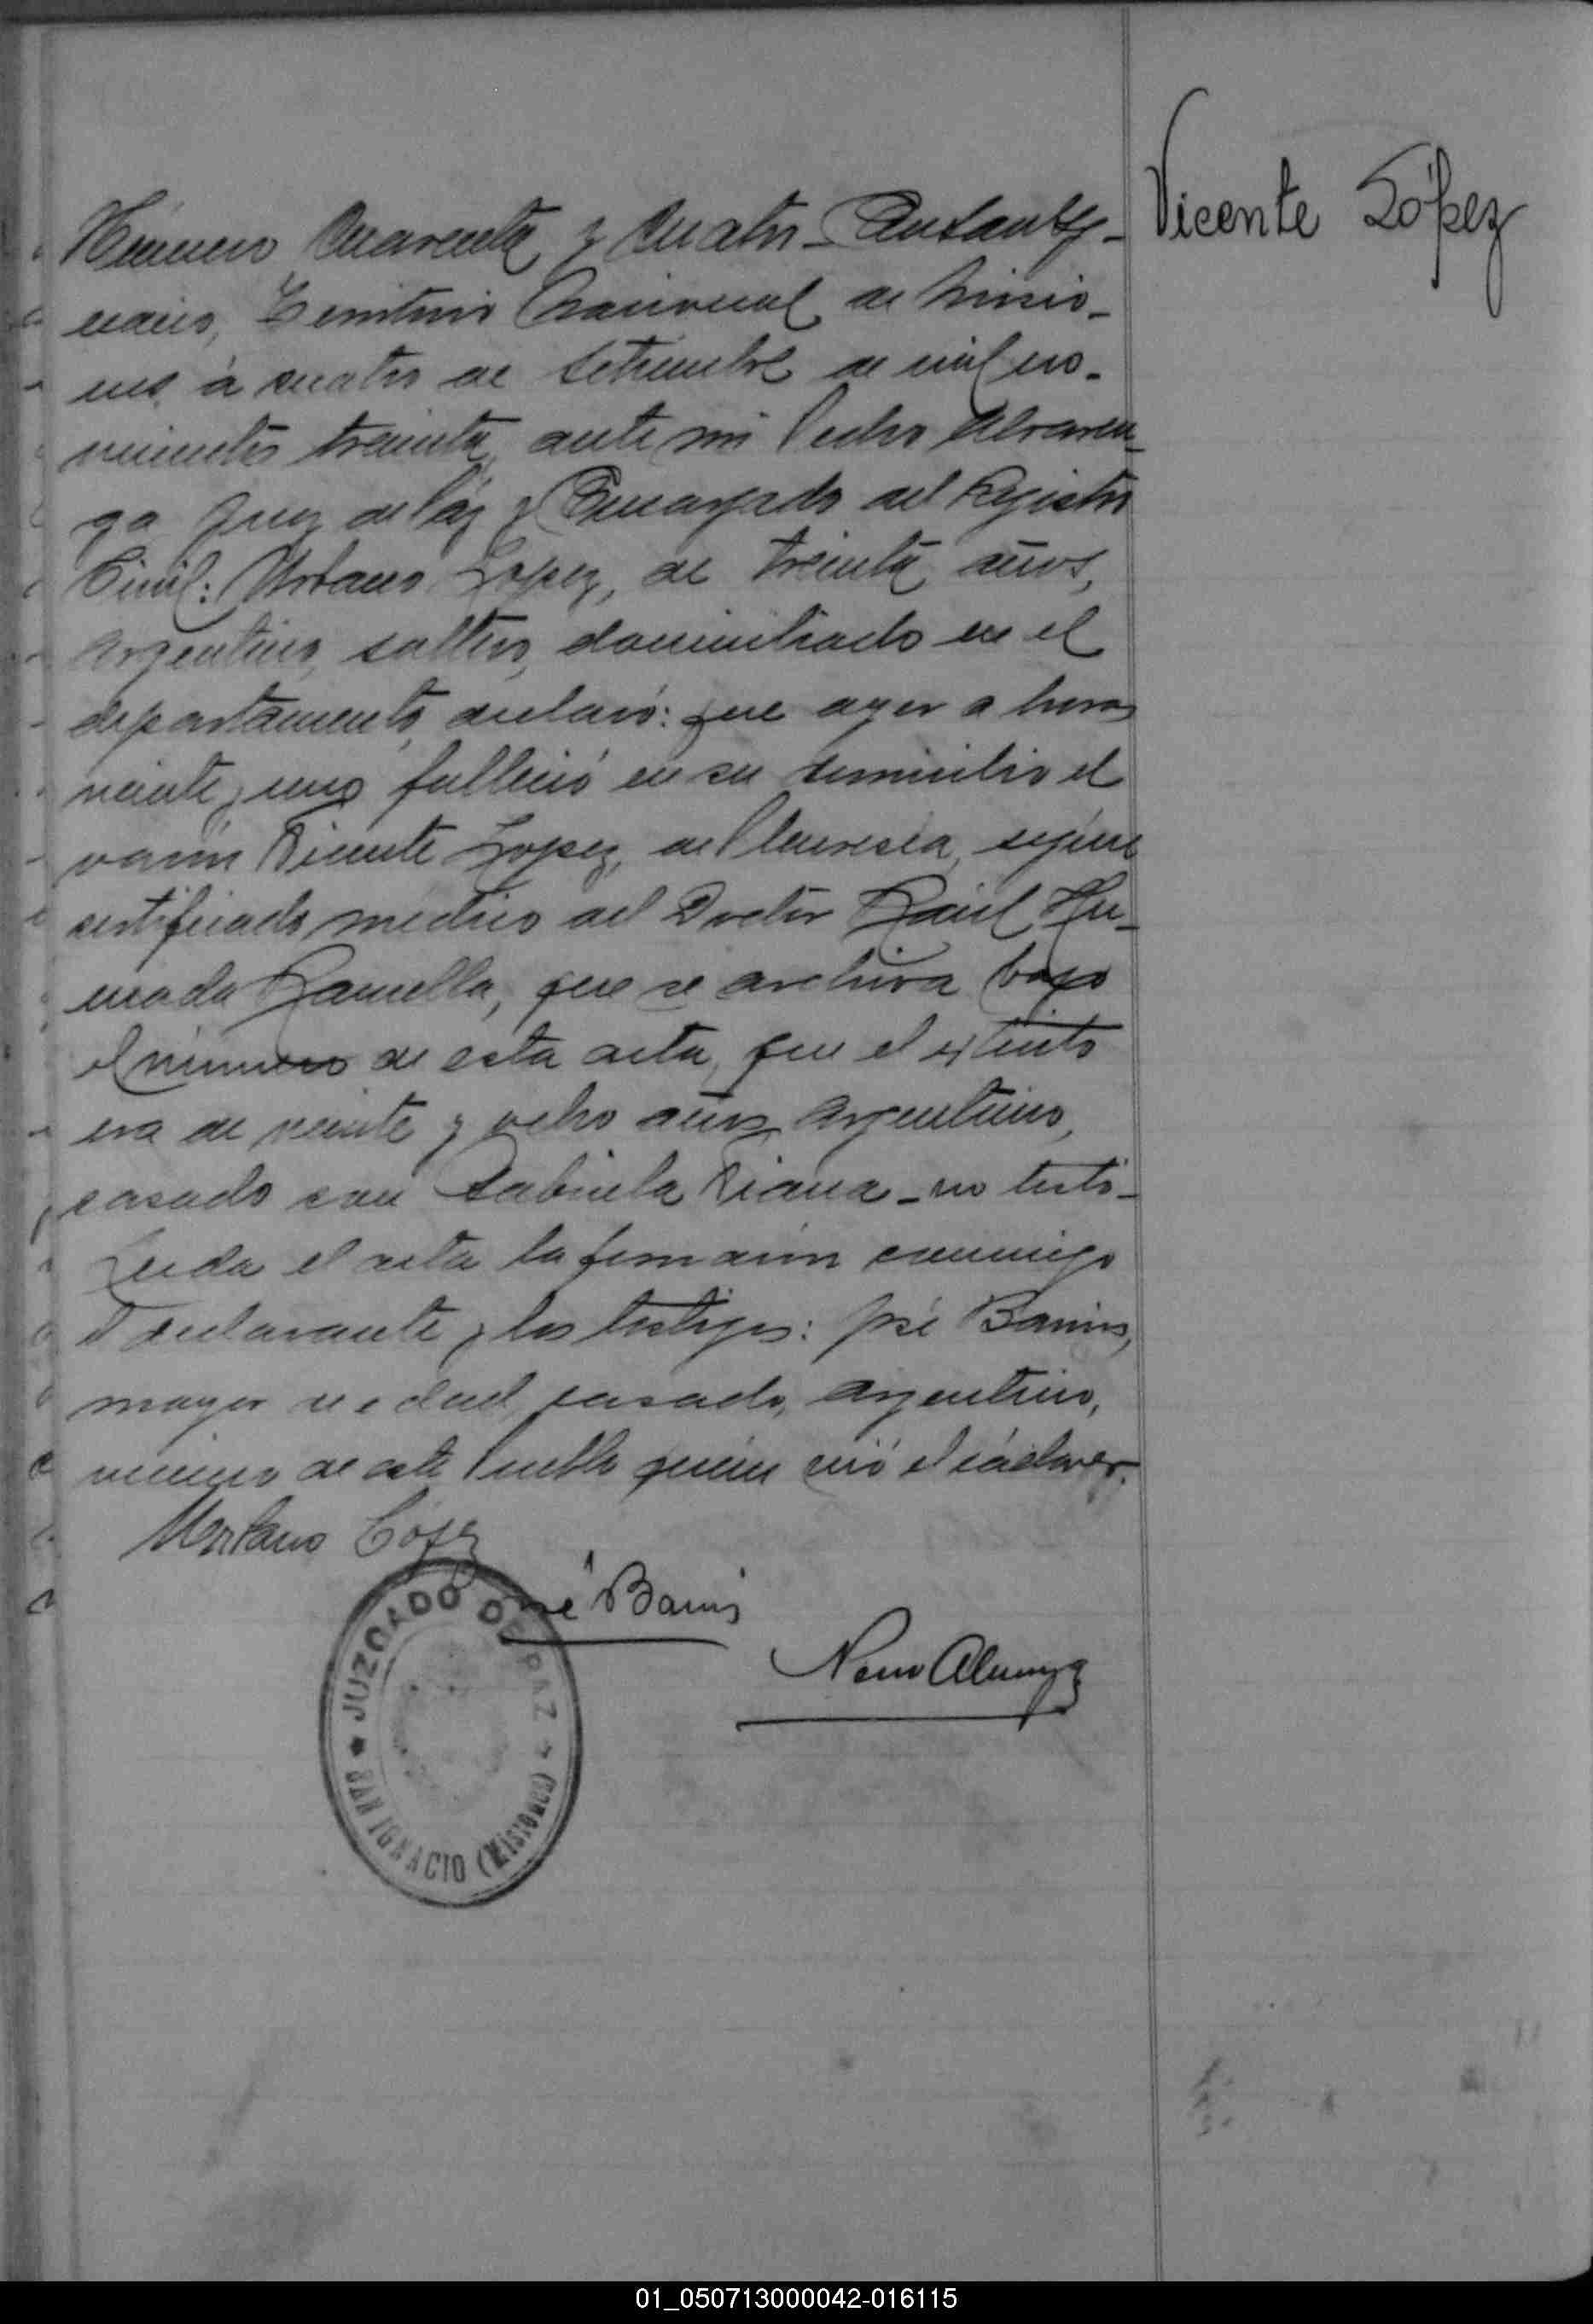 Vicente López
Número Cuarenta y Cuatro - En San Ig-
nacio, Territorio Nacional de Misio-
nes á cuatro de Setiembre de mil no-
vecientos treinta, ante mi Pedro Alvaren-
ga Juez de Paz y Encargado del Registro
Civil: Urbano Lopez, de treinta años,
argentino, soltero, domiciliado en el
departamento, declaró: que ayer a horas
veinte y una falleció en su domicilio el
varón Vicente Lopez, de Pleuresía, según
certificado médico del Doctor Raúl Hu-
mada Ramella, que se archiva bajo
el número de esta acta, que el extinto
era de veinte y ocho años, argentino,
casado con Gabriela Viana - no testó -
Leida el acta la firmaron conmigo
el declarante y los testigos: José Barrios,
mayor de edad, casado, argentino,
vecino de este Pueblo quien vió el cádaver.
Urbano López
José Barrios
JUZGADO DE PAZ
SAN IGNACIO (MISIONES)
01_050713000042-016115